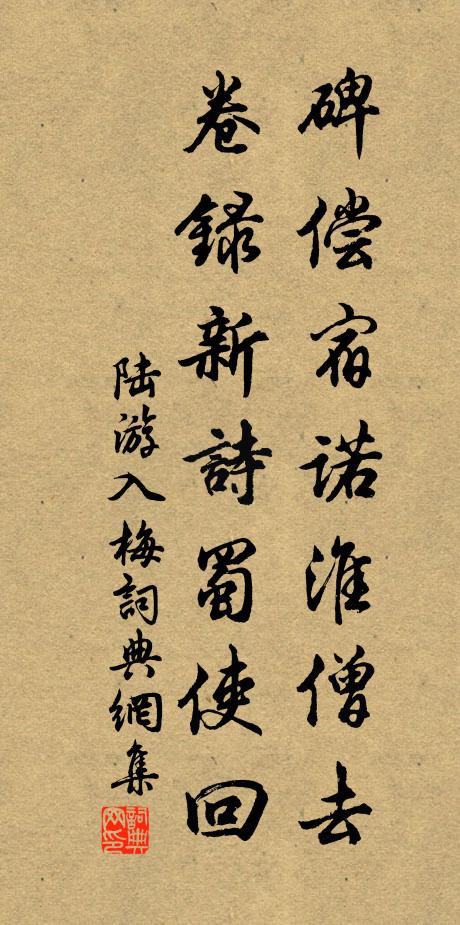 碑偿宿诺淮僧去
卷録新詩蜀使回
陆游入梅詞典網集
詞典网印